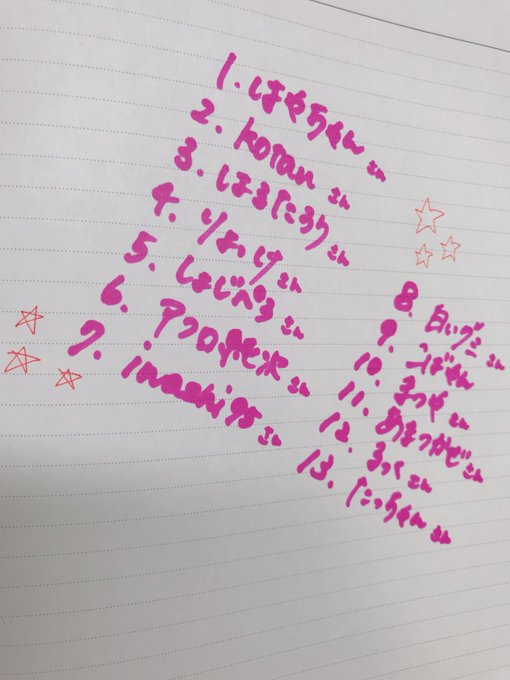 1. ほやちゃんさん
2. kotanさん
3. ほるたろうさん
4. りょっけさん
5. しょじぺろさん
6. アフロさん
7. iwashi95さん
8. 白いグミさん
9. こばやん
10. まつやさん
11. あまつかぜさん
12. るっくさん
13. たっちゃんさん